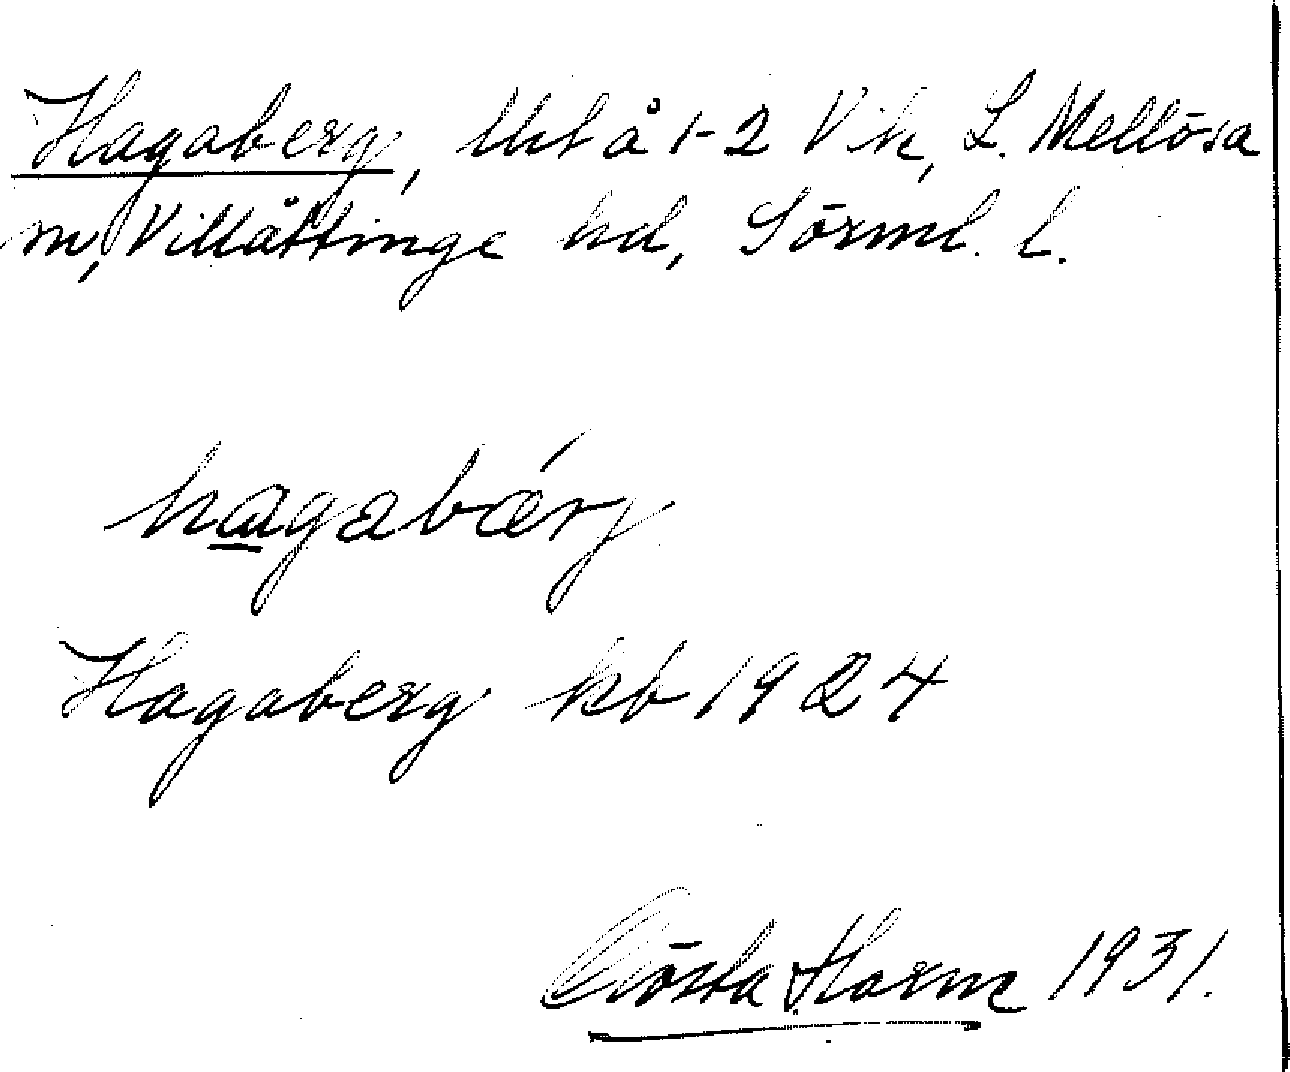 Hagaberg, Utl å 1-2 Vik, L. Mellösa
m, Villåttinge hd, Sörml. l.
hagabärj
Hagaberg kb 1924
Gösta Horm 1931.